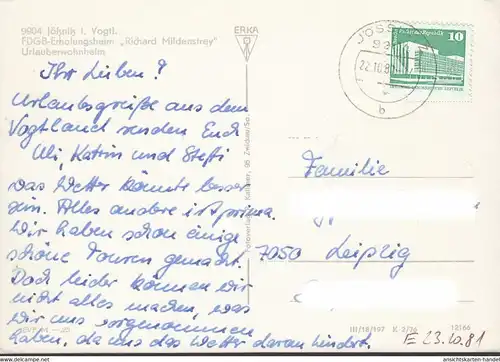 9904 Jößnitz i. Vogtl.
FDGB-Erholungsheim „Richard Mildenstrey"
Urlauberwohnheim
ERKA
JÖSS
22.10.81
b
10
Ihr Lieben!
Urlaubsgrüße aus dem
Vogtland senden Euch
Uli, Katrin und Steffi
Das Wetter könnte besser
sein. Alles andere ist prima.
Wir haben schon einige
schöne Touren gemacht.
Doch leider können wir
nicht alles machen, was
wir uns vorgenommen
haben, da uns das Wetter daran hindert.
Familie
7050 Leipzig
III/18/197 K 2/76 12166
E 23.10.81